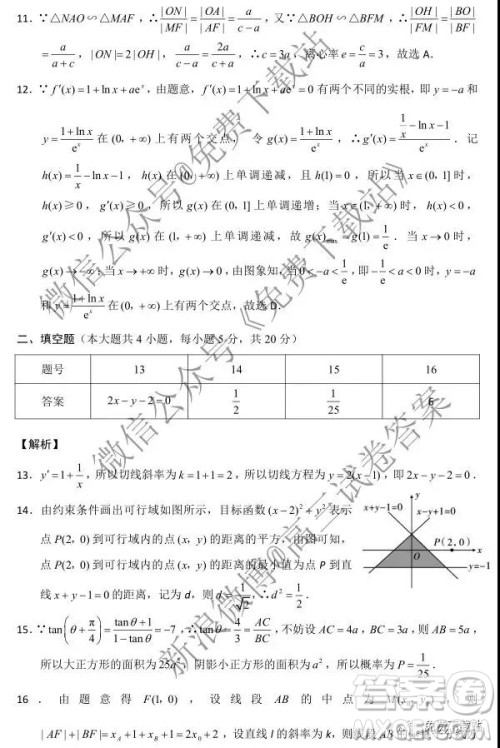 11. ∵△NAO∽△MAF，∴|ON|/|MF| = |OA|/|AF| = a/(c-a)，又∵△BOH∽△BFM，∴|OH|/|FM| = |BO|/|BF|
= a/(a+c)，|ON|=2|OH|，a/(c-a) = 2a/(c+a)，∴c=3a，离心率e = c/a = 3，故选 A．
12. ∵f′(x)=1+ln x+ae^x，由题意，f′(x)=1+ln x+ae^x=0有两个不同的实根，即 y=-a和
y=(1+ln x)/e^x 在(0，+∞)上有两个交点，令g(x)=(1+ln x)/e^x，∴g′(x)=(1/x - ln x - 1)/e^x．记
h(x)=1/x - ln x - 1，h(x)在(0，+∞)上单调递减，且h(1)=0，所以当x∈(0，1]时，
h(x)≥0，g′(x)≥0，所以g(x)在(0，1]上单调递增；当x∈(1，+∞)时，h(x)<0，
g′(x)<0，所以g(x)在(1，+∞)上单调递减，故g(x)max=g(1)=1/e．当x→0时，
g(x)→-∞；当x→+∞时，g(x)→0，由图象知，当0<-a<1/e，即-1/e<a<0时，y=-a
和y=(1+ln x)/e^x在(0，+∞)上有两个交点，故选 D．
二、填空题（本大题共 4 小题，每小题 5 分，共 20 分）
题号 13 14 15 16
答案 2x-y-2=0 1/2 1/25 6
【解析】
13. y′=1+1/x，所以切线斜率为k=1+1=2，所以切线方程为y=2(x-1)，即2x-y-2=0．
14. 由约束条件画出可行域如图所示，目标函数(x-2)²+y²表示
点P(2，0)到可行域内的点(x，y)的距离的平方，由图可
知，点P(2，0)到可行域内的点(x，y)的距离的最小值为点 P 到直
线x+y-1=0的距离，记为d，则d=1/√2，∴d²=1/2．
x+y-1=0
y
x-y+1=0
P(2,0)
O
x
y=-1
15. ∵tan(θ+π/4)=(tanθ+1)/(1-tanθ)=-7，∴tanθ=4/3=AC/BC，不妨设AC=4a，BC=3a，则AB=5a，
所以大正方形的面积25a²，阴影小正方形的面积a²，所以概率为P=1/25．
16．由题意得F(1,0)，设线段AB的中点为
|AF|+|BF|=xA+1+xB+1，设直线 l 的斜率为k，则
微信公众号@免费下载站
微信公众号《免费下载站》
新浪微博@高三试卷答案
答案圈